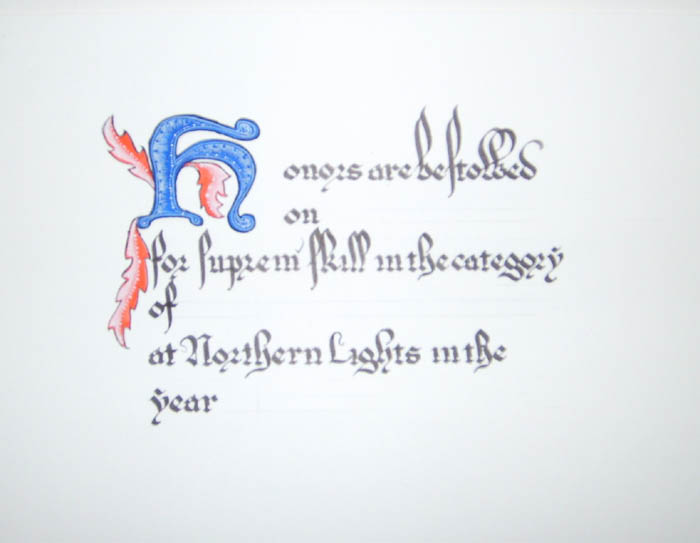 Honors are bestowed
on
for suprem skill in the category
of
at Northern Lights in the
year